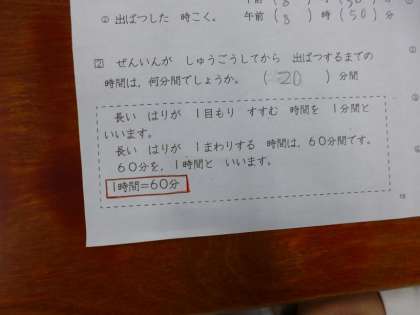 ② 出ばつした 時こく。 午前 (8) 時 (50) 分
2 ぜんいんが しゅうごうしてから 出ばつするまでの
時間は、何分間でしょうか。 (20) 分間
長い はりが 1目もり すすむ 時間を 1分間と
いいます。
長い はりが 1まわりする 時間は、60分間です。
60分を、1時間と いいます。
1時間=60分